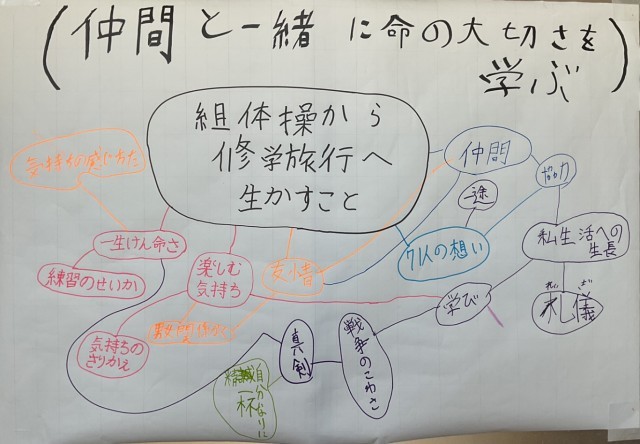 (仲間と一緒に命の大切さを
学ぶ)
組体操から
修学旅行へ
生かすこと
仲間
協力
一途
仇の想い
私生活への
生長
れい ぎ
礼儀
気持ちの感じ方
一生けん命さ
練習のせいか
楽しむ
気持ち
友情
人間関係
気持ちの
きりかえ
学び
戦争のこわさ
真剣
自分なりに
精一杯